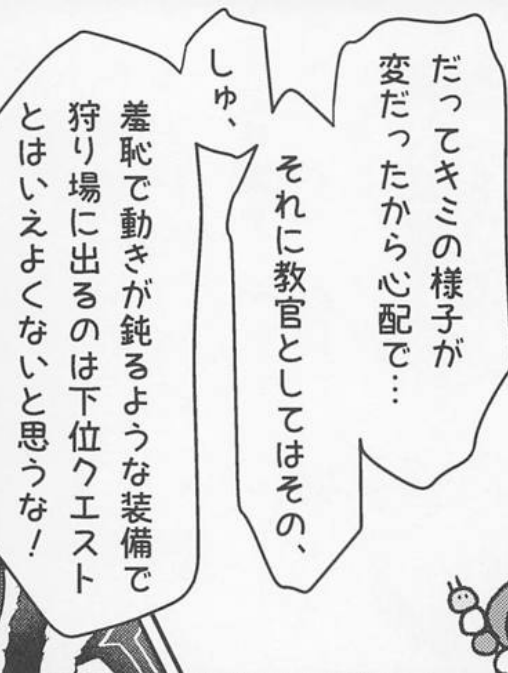 だってキミの様子が
変だったから心配で…
それに教官としてはその、
しゅ、
羞恥で動きが鈍るような装備で
狩り場に出るのは下位クエスト
とはいえよくないと思うな!